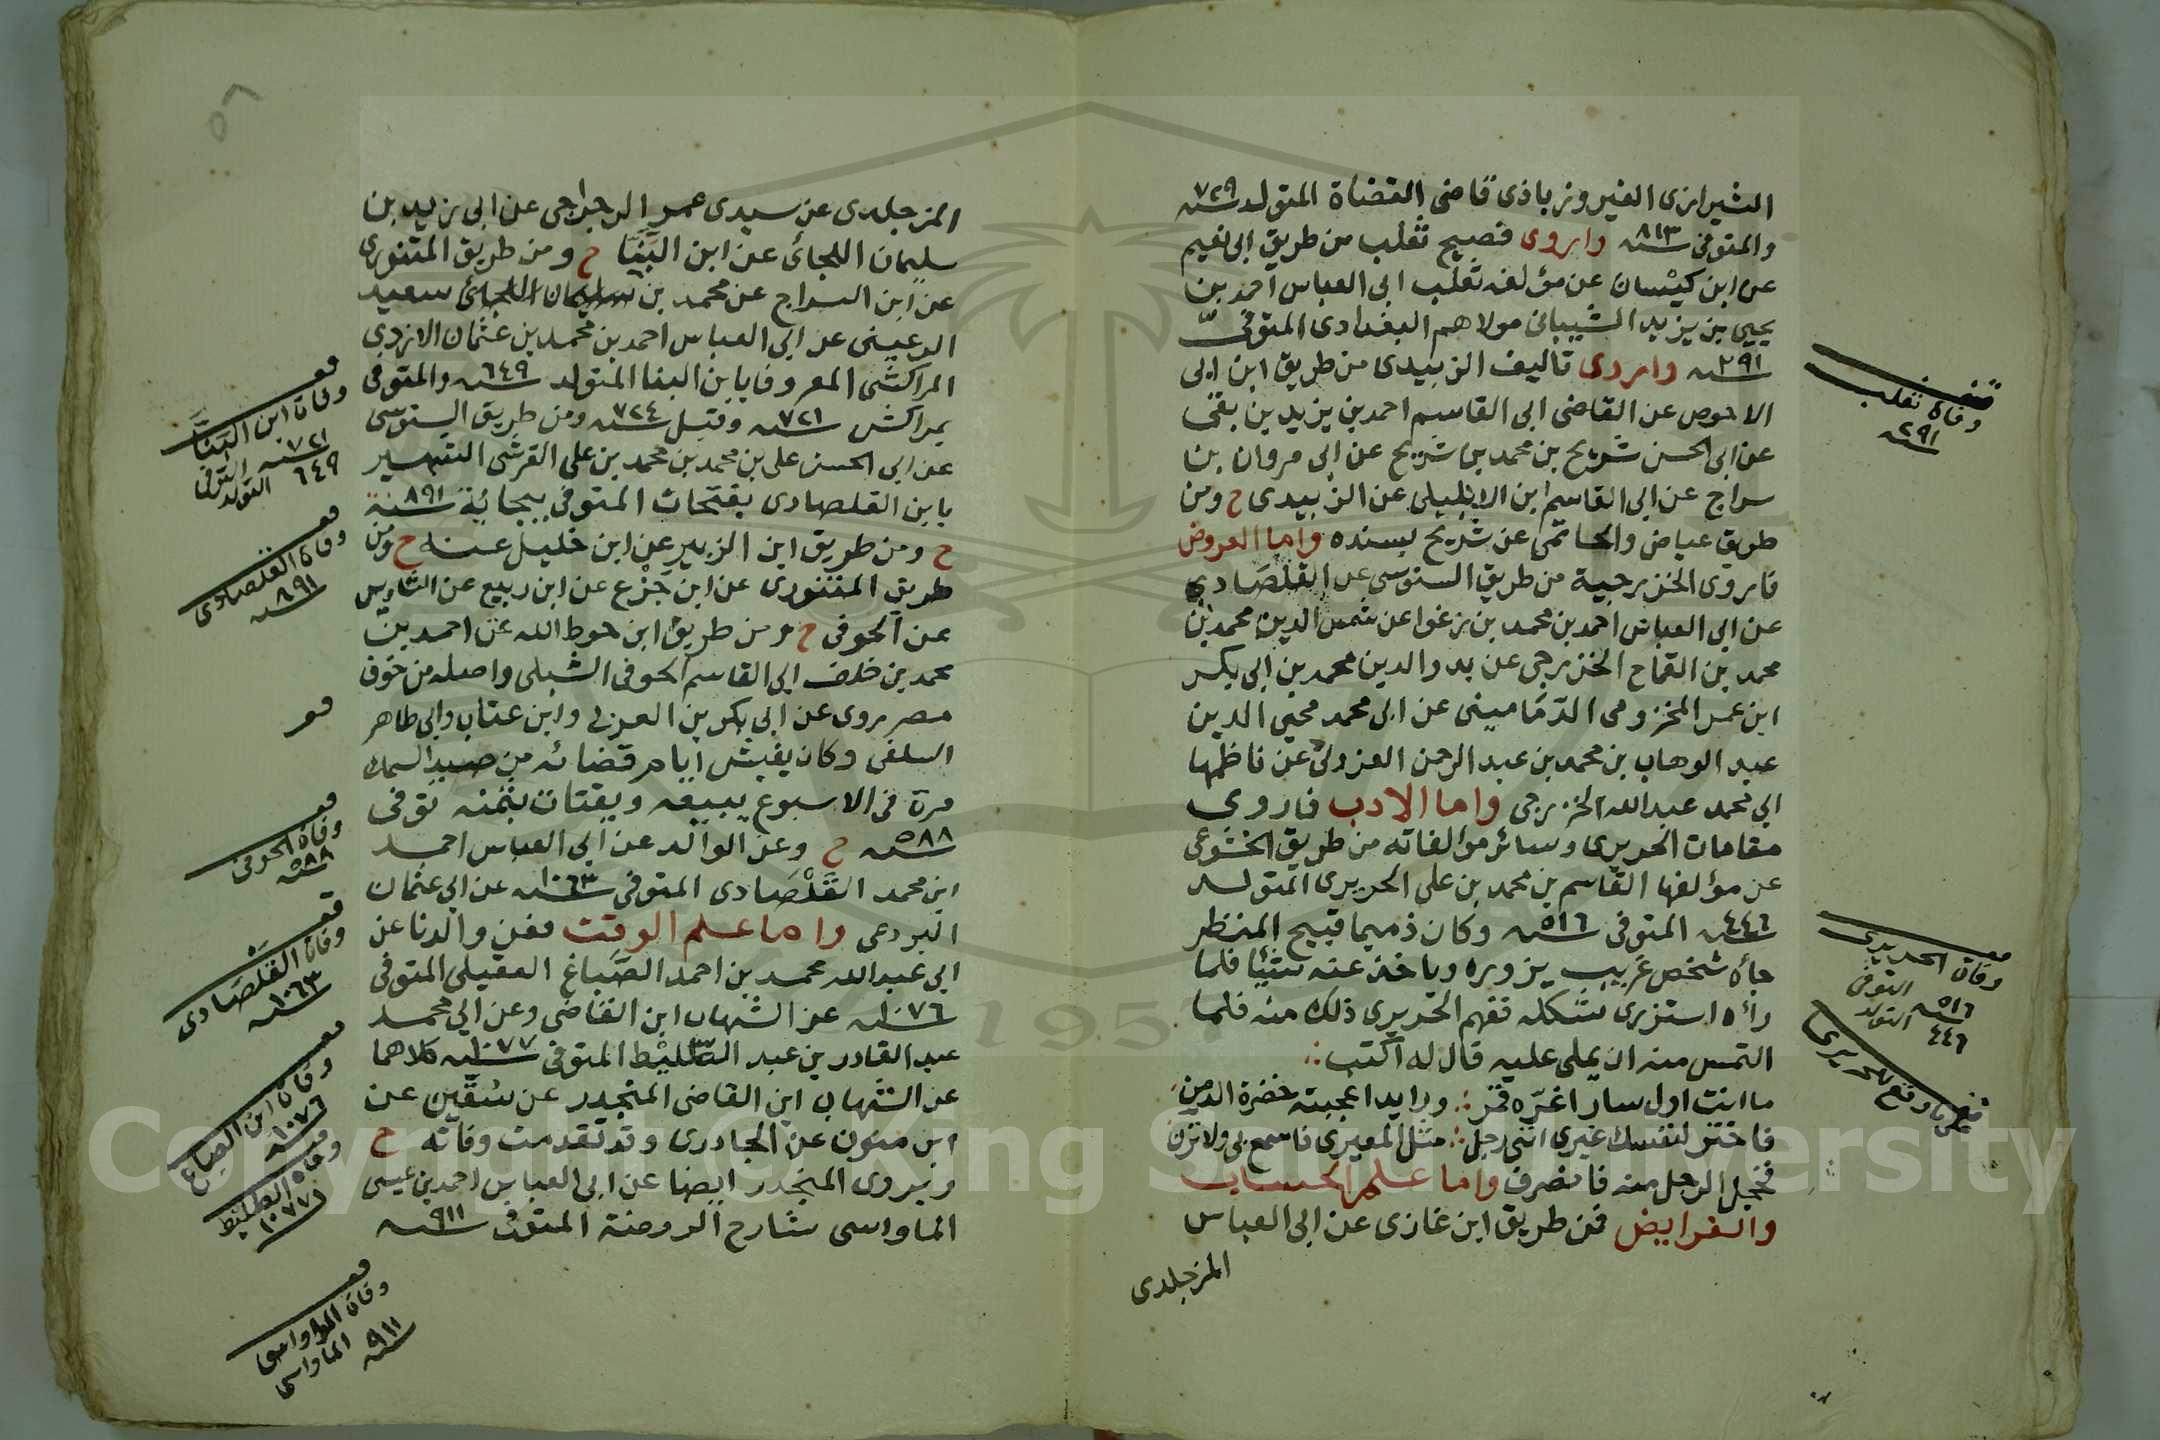 الشيرازى الفيروزباذى قاضى القضاة المتولد سنة ٧٢٩
والمتوفى سنة ٨١٣ واروى فصيح ثعلب من طريق ابى نعيم
عن ابن كيسان عن مؤلفه ثعلب ابى العباس احمد بن
يحيى بن يزيد الشيبانى مولاهم البغدادى المتوفى
سنة ٢٩١ واروى تاليف الزبيدى من طريق ابن ابى
الاحوص عن القاضى ابى القاسم احمد بن يزيد بن بقى
عن ابى الحسن شريح بن محمد بن شريح عن ابى مروان بن
سراج عن ابى القاسم ابن الافليلى عن الزبيدى ح ومن
طريق عياض والحاتمى عن شريح بسنده واما العروض
فاروى الخزرجية من طريق السنوسى عن القلصادى
عن ابى العباس احمد بن محمد بن زغوا عن شمس الدين محمد بن
محمد بن القماح الخزرجى عن بدر الدين محمد بن ابى بكر
ابن عمر المخزومى الدمامينى عن ابى محمد محيى الدين
عبد الوهاب بن محمد بن عبد الرحمن الغزولى عن ناظمها
ابى محمد عبد الله الخزرجى واما الادب فاروى
مقامات الحريرى وسائر موالفاته من طريق الخشوعى
عن مؤلفها القاسم بن محمد بن على الحريرى المتولد
سنة ٤٤٦ المتوفى سنة ٥١٦ وكان ذميما قبيح المنظر
جأه شخص غريب يزوره وياخذ عنه شيئا فلما
رأه استزرى شكله ففهم الحريرى ذلك منه فلما
التمس منه ان يملى عليه قال له اكتب
ما انت اول سار اغره قمر ورايدا عجبته خضرة الدمن
فاختر لنفسك غيرى اننى رجل مثل المعيدى فاسمع بى ولا ترن
فخجل الرجل منه فانصرف واما علم الحساب
والفرايض فمن طريق ابن غازى عن ابى العباس
المزجلدى
قف
وفاة ثعلب
سنة ٢٩١
وفاة الحريرى
سنة ٥١٦ المتوفى
٤٤٦ المتولد
قف ما وقع للحريرى
المزجلدى عن سيدى عمر الرجراجى عن ابى زيد بن
سليمان اللجائى عن ابن البنا ح ومن طريق المنتورى
عن ابن السراج عن محمد بن سليمان اللجائى سعيد
الرعينى عن ابى العباس احمد بن محمد بن عثمان الازدى
المراكشى المعروف بابن البنا المتولد سنة ٦٤٩ والمتوفى
بمراكش سنة ٧٢١ وقيل سنة ٧٢٤ ومن طريق السنوسى
عن ابى الحسن على بن محمد بن محمد بن على القرشى الشهير
بابن القلصادى بفتحات المتوفى ببجاية سنة ٨٩١
ح ومن طريق ابن الزبير عن ابن خليل عنه ح ومن
طريق المنتورى عن ابن جزع عن ابن ربيع عن الشاريس
عن الحوفى ح ومن طريق ابن حوط الله عن احمد بن
محمد بن خلف ابى القاسم الحوفى الشبلى واصله من حوف
مصر يروى عن ابى بكر بن العربى وابن عتاب وابى طاهر
السلفى وكان يعيش ايام قضائه من صيد السمك
مرة فى الاسبوع يبيعه ويقتات بثمنه توفى
سنة ٥٨٨ ح وعن الوالد عن ابى العباس احمد
ابن محمد القلصادى المتوفى سنة ١٠٦٣ عن ابى عثمان
البردعى واما علم الوقت فعن والدنا عن
ابى عبد الله محمد بن احمد الصباغ العقيلى المتوفى
سنة ١٠٧٦ عن الشهاب ابن القاضى وعن ابى محمد
عبد القادر بن عبد الطليط المتوفى سنة ١٠٧٧ كلاهما
عن الشهاب ابن القاضى المنجور عن سقين عن
ابن ميمون عن الجادرى وقد تقدمت وفاته ح
ويروى المنجور ايضا عن ابى العباس احمد بن عيسى
الماواسى شارح الروضة المتوفى سنة ٩١١
وفاة ابن البنا
سنة ٧٢١ المتوفى
٦٤٩ المتولد
وفاة القلصادى
سنة ٨٩١
وفاة الحوفى
سنة ٥٨٨
وفاة القلصادى
سنة ١٠٦٣
وفاة ابن الصباغ
سنة ١٠٧٦
وفاة الطليط
١٠٧٧
وفاة الماواسى
الماواسى
سنة ٩١١
٥٨
1957
Copyright © King Saud University